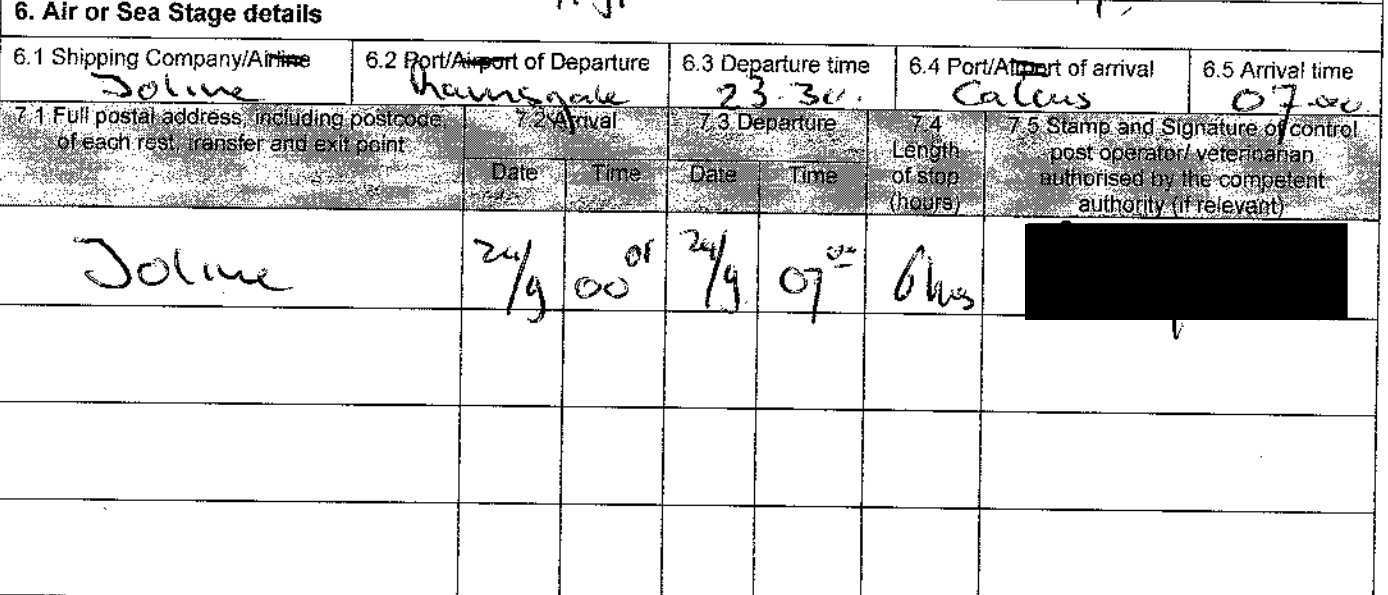 6. Air or Sea Stage details
6.1 Shipping Company/Airline
6.2 Port/Airport of Departure
6.3 Departure time
6.4 Port/Airport of arrival
6.5 Arrival time
Joline
Ramsgate
23.30.
Calais
07.00
7.1 Full postal address, including postcode,
of each rest, transfer and exit point
7.2 Arrival
7.3 Departure
Date
Time
Date
Time
7.4
Length
of stop
(hours)
7.5 Stamp and Signature of control
post operator/ veterinarian
authorised by the competent
authority (if relevant)
Joline
24/9
00
24/9
07 00
6hrs